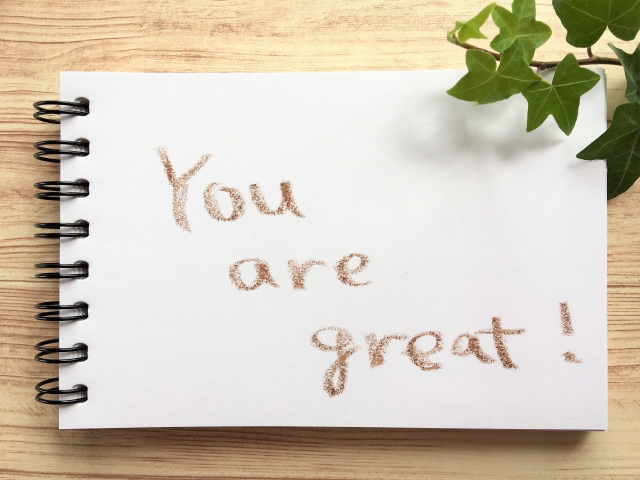 You
are
great!